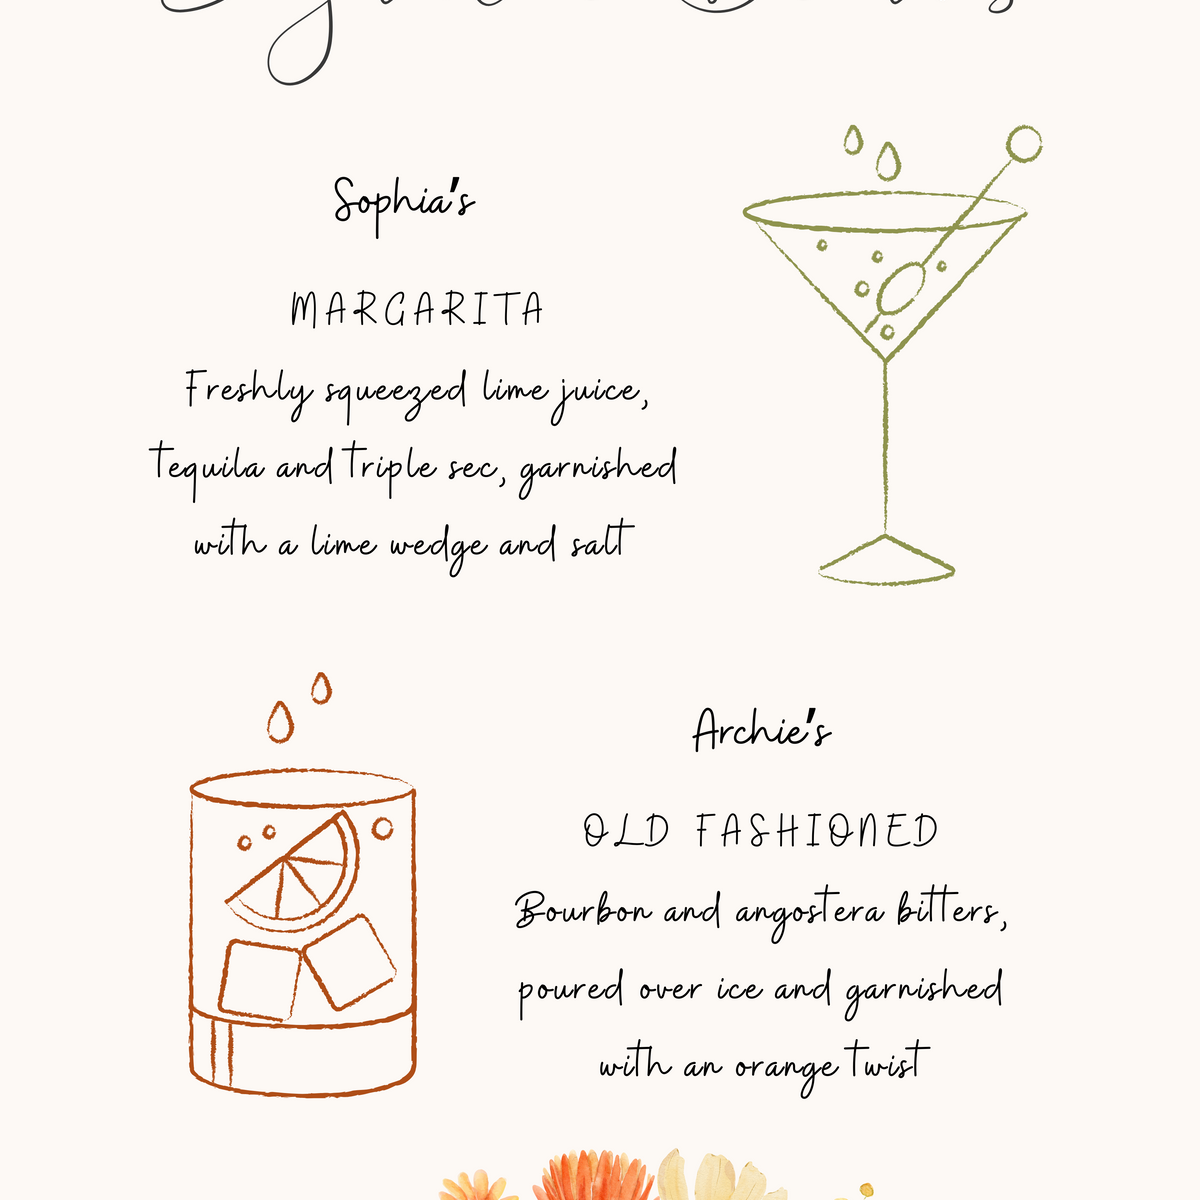 Sophia's
MARGARITA
Freshly squeezed lime juice,
tequila and triple sec, garnished
with a lime wedge and salt
Archie's
OLD FASHIONED
Bourbon and angostera bitters,
poured over ice and garnished
with an orange twist